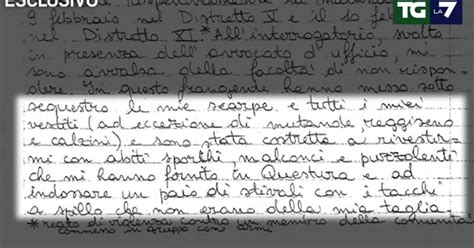 ESCLUSIVO
TG LA7
9 febbraio nel Distretto V e il 10
nel Distretto XI.* All'interrogatorio, svolto
in presenza dell'avvocato d'ufficio, mi
sono avvalsa della facoltà di non rispon-
dere. In questo frangente hanno messo sotto
sequestro le mie scarpe e tutti i miei
vestiti (ad eccezione di mutande, reggiseno
e calzini) e sono stata costretta a rivestir-
mi con abiti sporchi, malconci e puzzolenti
che mi hanno fornito in Questura e ad
indossare un paio di stivali con i tacchi
a spillo che non erano della mia taglia.
*reato di violenza contro membro della comunità